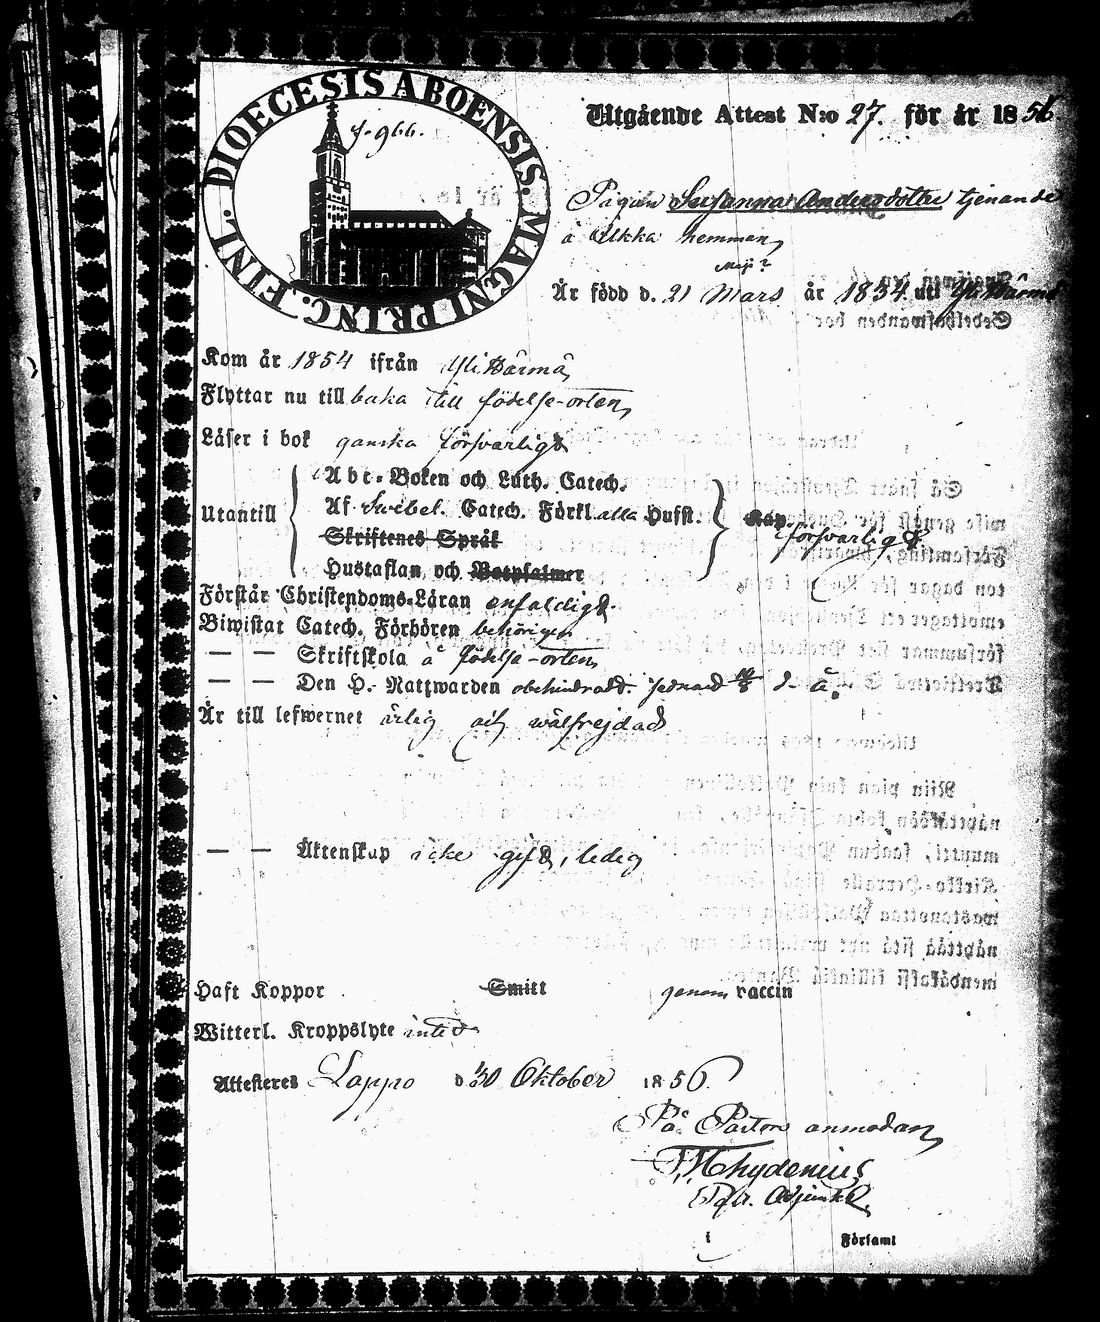 DIOECESIS ABOENSIS. MAGNI PRINC. FINL.
f. 966.
Utgående Attest N:o 27. för år 1856
Pigan Susanna Andersdotter tjenande
å Ulkka hemman,
Maji?
Är född d. 21 Mars år 1834 uti Yli Härmä
Kom år 1854 ifrån Yli Härmä,
Flyttar nu till baka till födelse-orten,
Läser i bok ganska försvarligt
Utantill
Abc-Boken och Luth. Catech.
Af Svebel. Catech. Förkl. alla Hufst.
Skriftenes Språk
Hustaflan, och Botpsalmer
Kap.
försvarligt
Förstår Christendoms-Läran enfaldigt.
Biwistat Catech. Förhören behörigen
— — Skriftskola å födelse-orten,
— — Den H. Nattwarden obehindradt sednast d. å.
Är till lefwernet ärlig och wälfrejdad
— — Äktenskap icke gift, ledig
Haft Koppor Smitt genom vaccin
Witterl. Kroppslyte intet
Attesteras Lappo d. 30 Oktober 1856.
På Pastors anmodan,
Chydenius
Adjunkt
i Församl